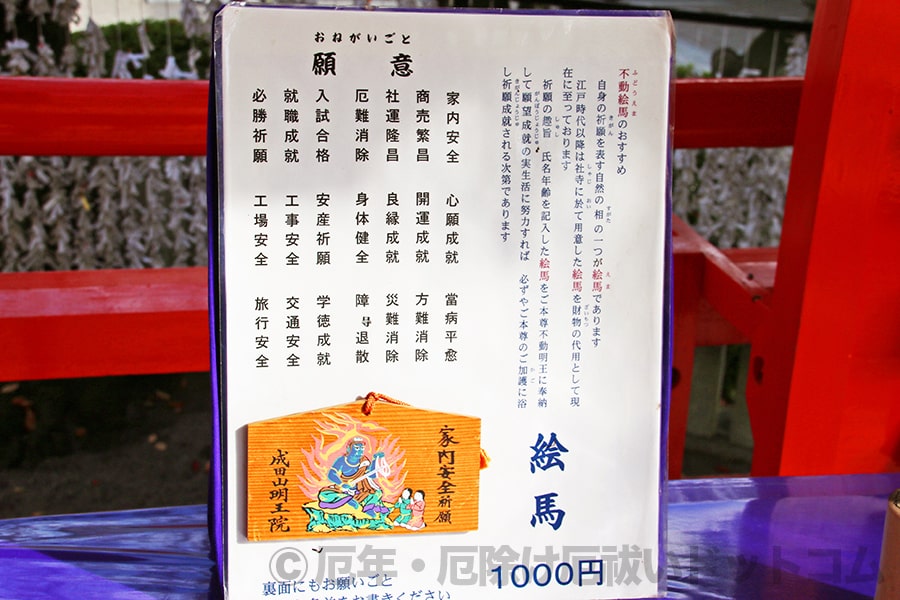 ふどうえま
不動絵馬のおすすめ
きがん すがた えま
自身の祈願を表す自然の相の一つが絵馬であります
しゃじ おい ざいもつ
江戸時代以降は社寺に於て用意した絵馬を財物の代用として現
在に至っております
しゅし
祈願の趣旨 氏名年齢を記入した絵馬をご本尊不動明王に奉納
がんぼうじょうじゅ かご
して願望成就の実生活に努力すれば 必ずやご本尊のご加護に浴
きがんじょうじゅ
し祈願成就される次第であります
絵馬
1000円
おねがいごと
願意
家内安全 心願成就 當病平愈
商売繁昌 開運成就 方難消除
社運隆昌 良縁成就 災難消除
厄難消除 身体健全 障导退散
入試合格 安産祈願 学徳成就
就職成就 工事安全 交通安全
必勝祈願 工場安全 旅行安全
家内安全祈願
成田山明王院
裏面にもお願いごと
をお書きください
©厄年・厄除け厄祓いドットコム